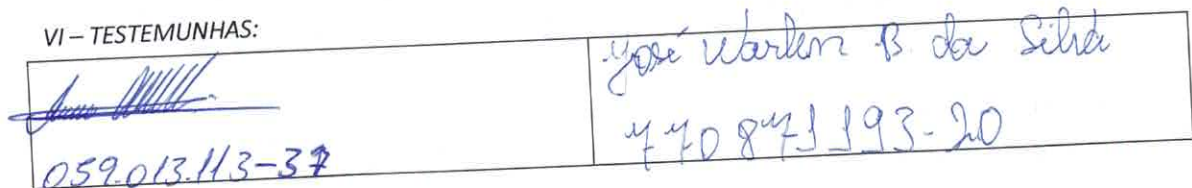 VI – TESTEMUNHAS:
059.013.113-37
José Warlen B. da Silva
770871193-20